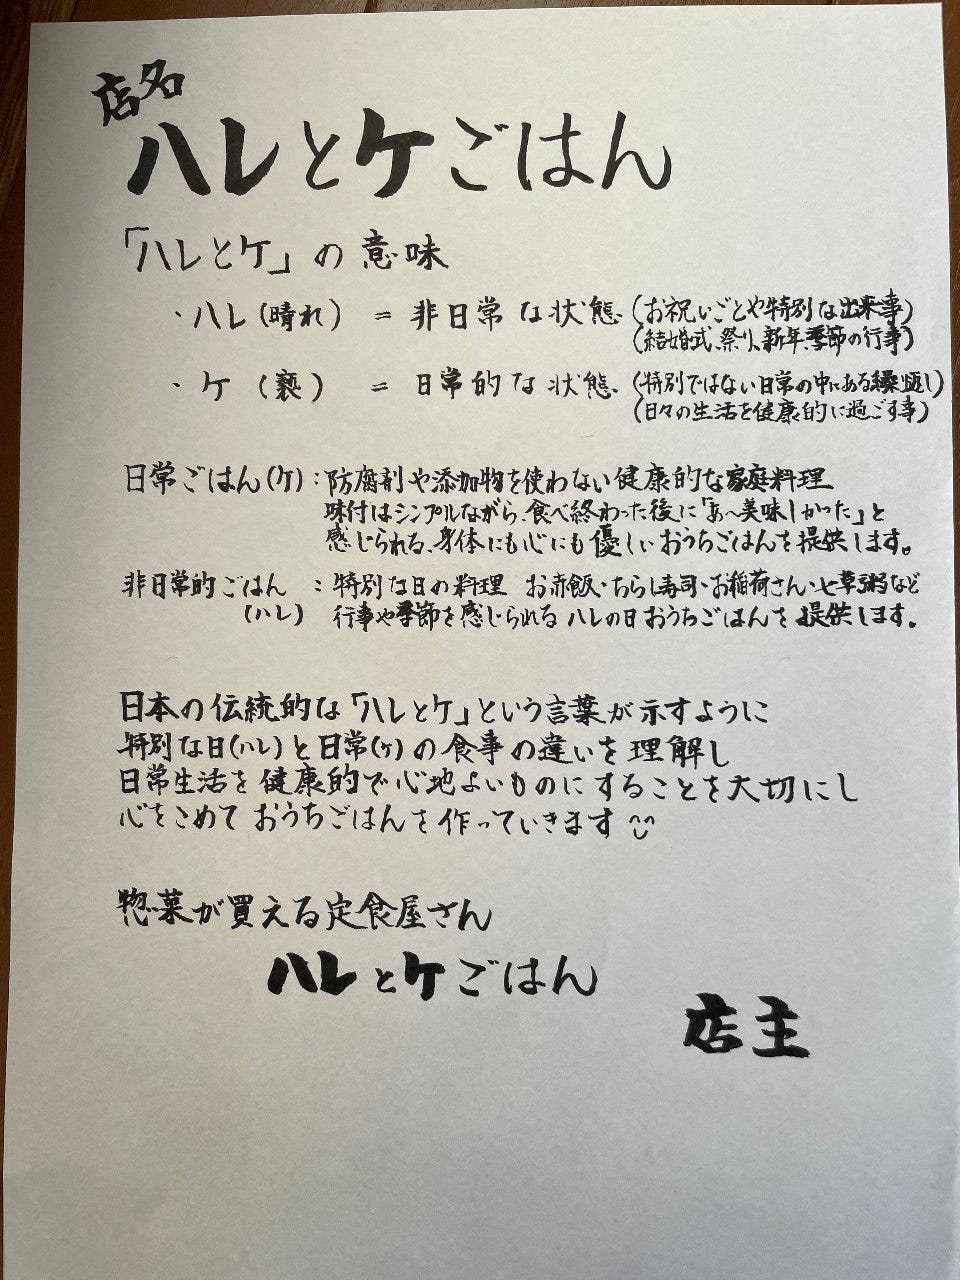 店名
ハレとケごはん
「ハレとケ」の意味
・ハレ(晴れ) = 非日常な状態 (お祝いごとや特別な出来事)
(結婚式、祭り、新年、季節の行事)
・ケ(褻) = 日常的な状態 (特別ではない日常の中にある繰り返し)
(日々の生活を健康的に過ごす事)
日常ごはん(ケ):防腐剤や添加物を使わない健康的な家庭料理
味付はシンプルながら、食べ終わった後に「あ〜美味しかった」と
感じられる、身体にも心にも優しいおうちごはんを提供します。
非日常的ごはん :特別な日の料理 お赤飯・ちらし寿司・お稲荷さん・七草粥など
(ハレ) 行事や季節を感じられる ハレの日おうちごはんを提供します。
日本の伝統的な「ハレとケ」という言葉が示すように
特別な日(ハレ)と日常(ケ)の食事の違いを理解し
日常生活を健康的で心地よいものにすることを大切にし
心をこめておうちごはんを作っていきます
惣菜が買える定食屋さん
ハレとケごはん
店主